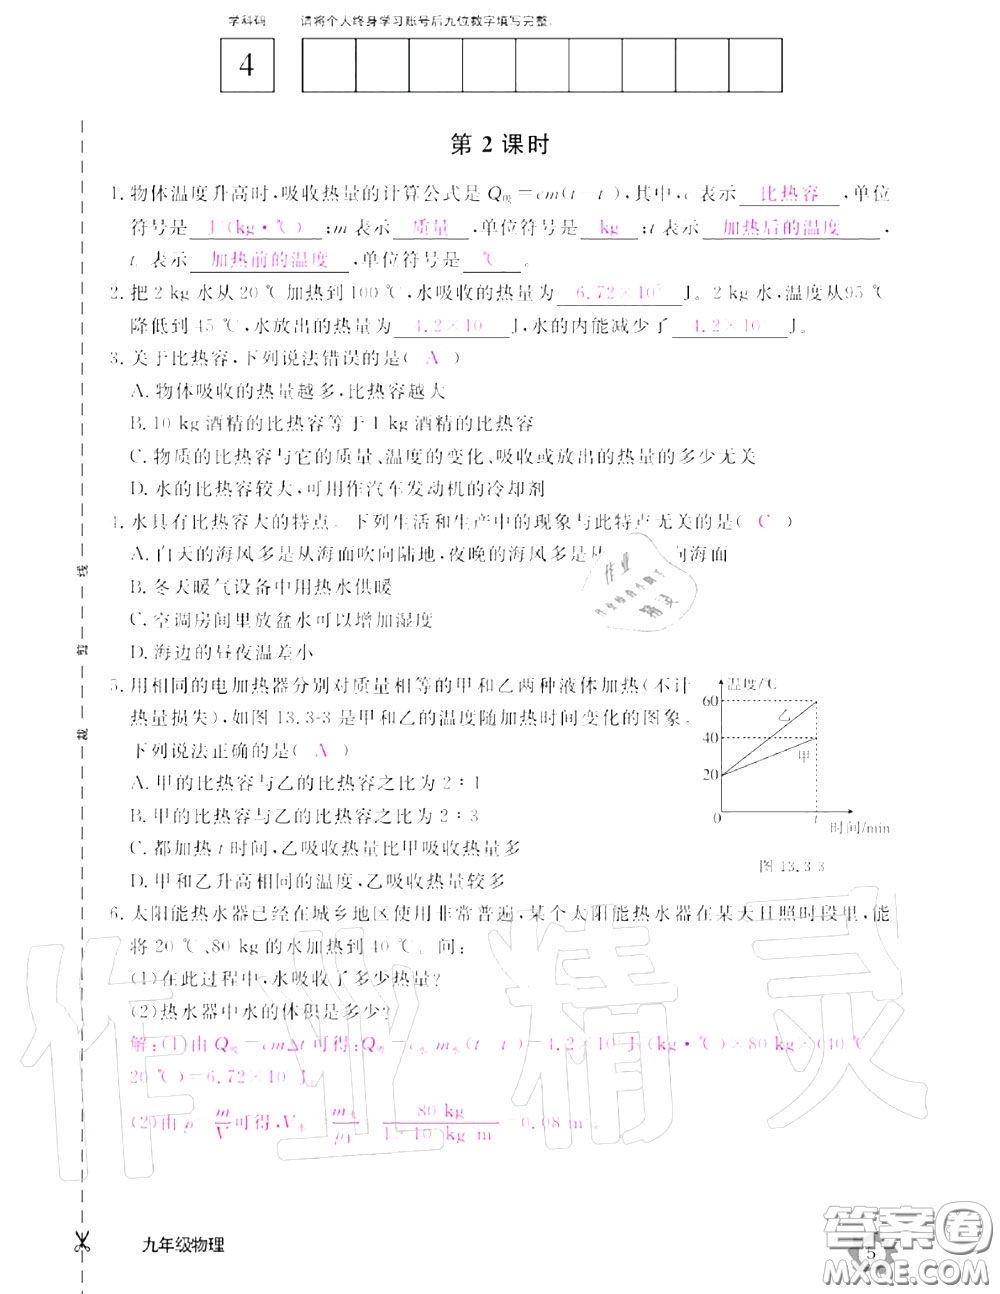 学科码 请将个人终身学习账号后九位数字填写完整.
4
第 2 课时
1. 物体温度升高时,吸收热量的计算公式是 Q吸=cm(t-t ),其中,c 表示 比热容 ,单位
符号是 J (kg·℃) ;m 表示 质量 ,单位符号是 kg ;t 表示 加热后的温度 ,
t. 表示 加热前的温度 ,单位符号是 ℃ 。
2. 把 2 kg 水从 20 ℃加热到 100 ℃,水吸收的热量为 6.72×10 J。2 kg 水,温度从95 ℃
降低到 45 ℃,水放出的热量为 4.2×10 J,水的内能减少了 4.2×10 J。
3. 关于比热容,下列说法错误的是( A )
A. 物体吸收的热量越多,比热容越大
B. 10 kg 酒精的比热容等于 1 kg 酒精的比热容
C. 物质的比热容与它的质量、温度的变化、吸收或放出的热量的多少无关
D. 水的比热容较大,可用作汽车发动机的冷却剂
4. 水具有比热容大的特点。下列生活和生产中的现象与此特点无关的是( C )
A. 白天的海风多是从海面吹向陆地,夜晚的海风多是从 向海面
B. 冬天暖气设备中用热水供暖
C. 空调房间里放盆水可以增加湿度
D. 海边的昼夜温差小
5. 用相同的电加热器分别对质量相等的甲和乙两种液体加热(不计
热量损失),如图 13.3-3 是甲和乙的温度随加热时间变化的图象。
下列说法正确的是( A )
A. 甲的比热容与乙的比热容之比为 2∶1
B. 甲的比热容与乙的比热容之比为 2∶3
C. 都加热 t 时间,乙吸收热量比甲吸收热量多
D. 甲和乙升高相同的温度,乙吸收热量较多
温度/℃
60
乙
40
甲
20
0 t
时间/min
图 13.3-3
6. 太阳能热水器已经在城乡地区使用非常普遍,某个太阳能热水器在某天日照时段里,能
将 20 ℃、80 kg 的水加热到 40 ℃。问:
(1)在此过程中,水吸收了多少热量?
(2)热水器中水的体积是多少?
解:(1)由 Q吸=cmΔt 可得:Q吸=c水m水(t-t )=4.2×10 J (kg·℃)×80 kg×(40 ℃
20 ℃)=6.72×10 J。
(2)由 ρ m/V 可得,V水 m水/ρ水 80 kg/1×10 kg m =0.08 m 。
作业精灵
作业
精灵
剪 裁 线
九年级物理
5
答案圈
MXQE.COM